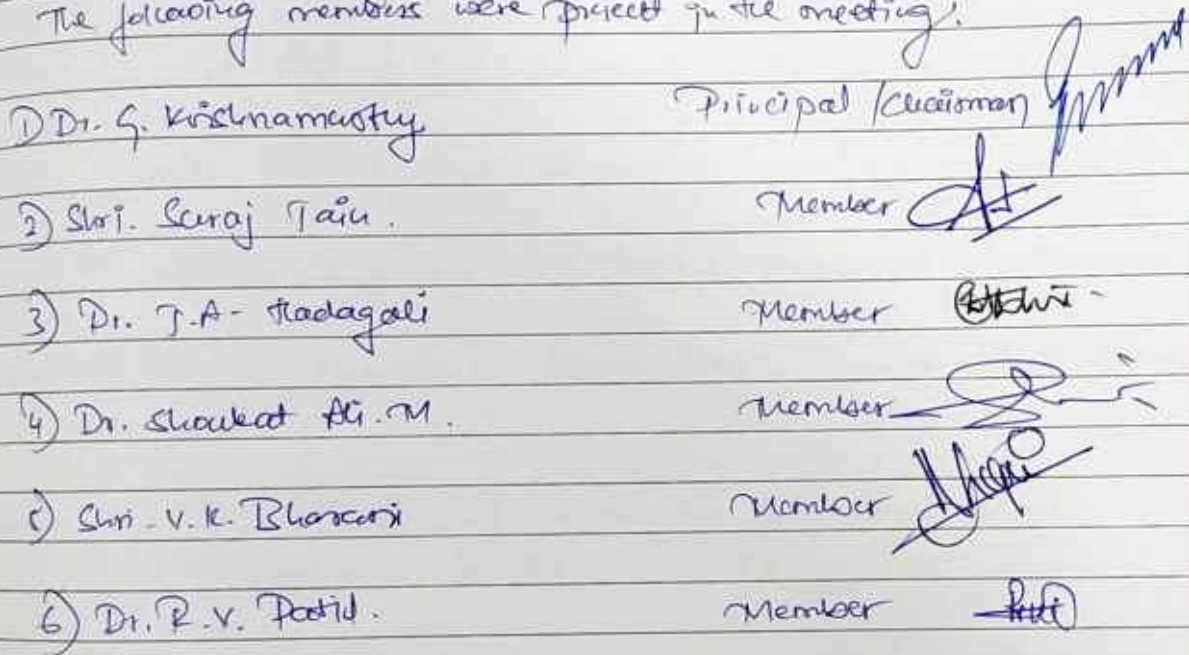 The following members were present in the meeting.
1) Dr. G. Krishnamurthy Principal / Chairman
2) Shri. Suraj Jain. Member
3) Dr. J.A. Hadagali Member
4) Dr. Shoukat Ali. M. Member
5) Shri. V.K. Bharani Member
6) Dr. R.V. Patil. Member